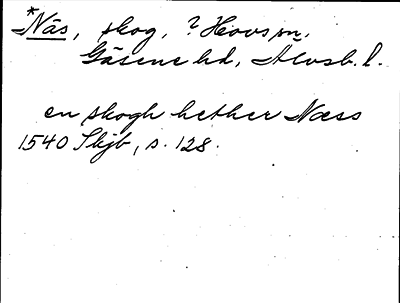 *Näs, skog, ? Hovs sn,
Gäsene hd, Älvsb. l.
en skogh hether Næss
1540 Skjb, s. 128.